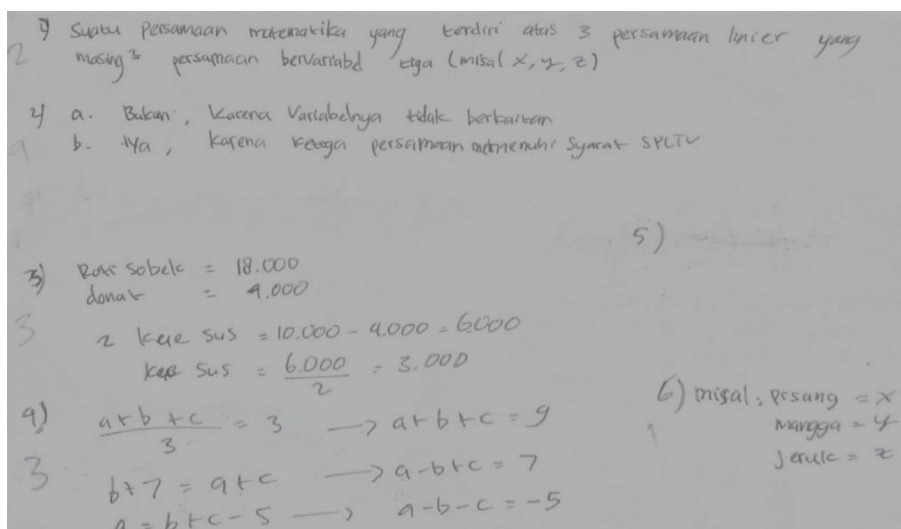 1) Suatu persamaan matematika yang terdiri atas 3 persamaan linier yang
2
masing² persamaan bervariabel tiga (misal x, y, z)
2) a. Bukan, Karena Variabelnya tidak berkaitan
b. Iya, karena ketiga persamaan memenuhi Syarat SPLTV
3) Roti Sobek = 18.000
donat = 4.000
3
2 kue sus = 10.000 - 4.000 = 6.000
kue sus = 6.000/2 = 3.000
4) a+b+c/3 = 3 → a+b+c = 9
3
b+7 = a+c → a-b+c = 7
a = b+c-5 → a-b-c = -5
5)
6) misal: pisang = x
mangga = y
Jeruk = z